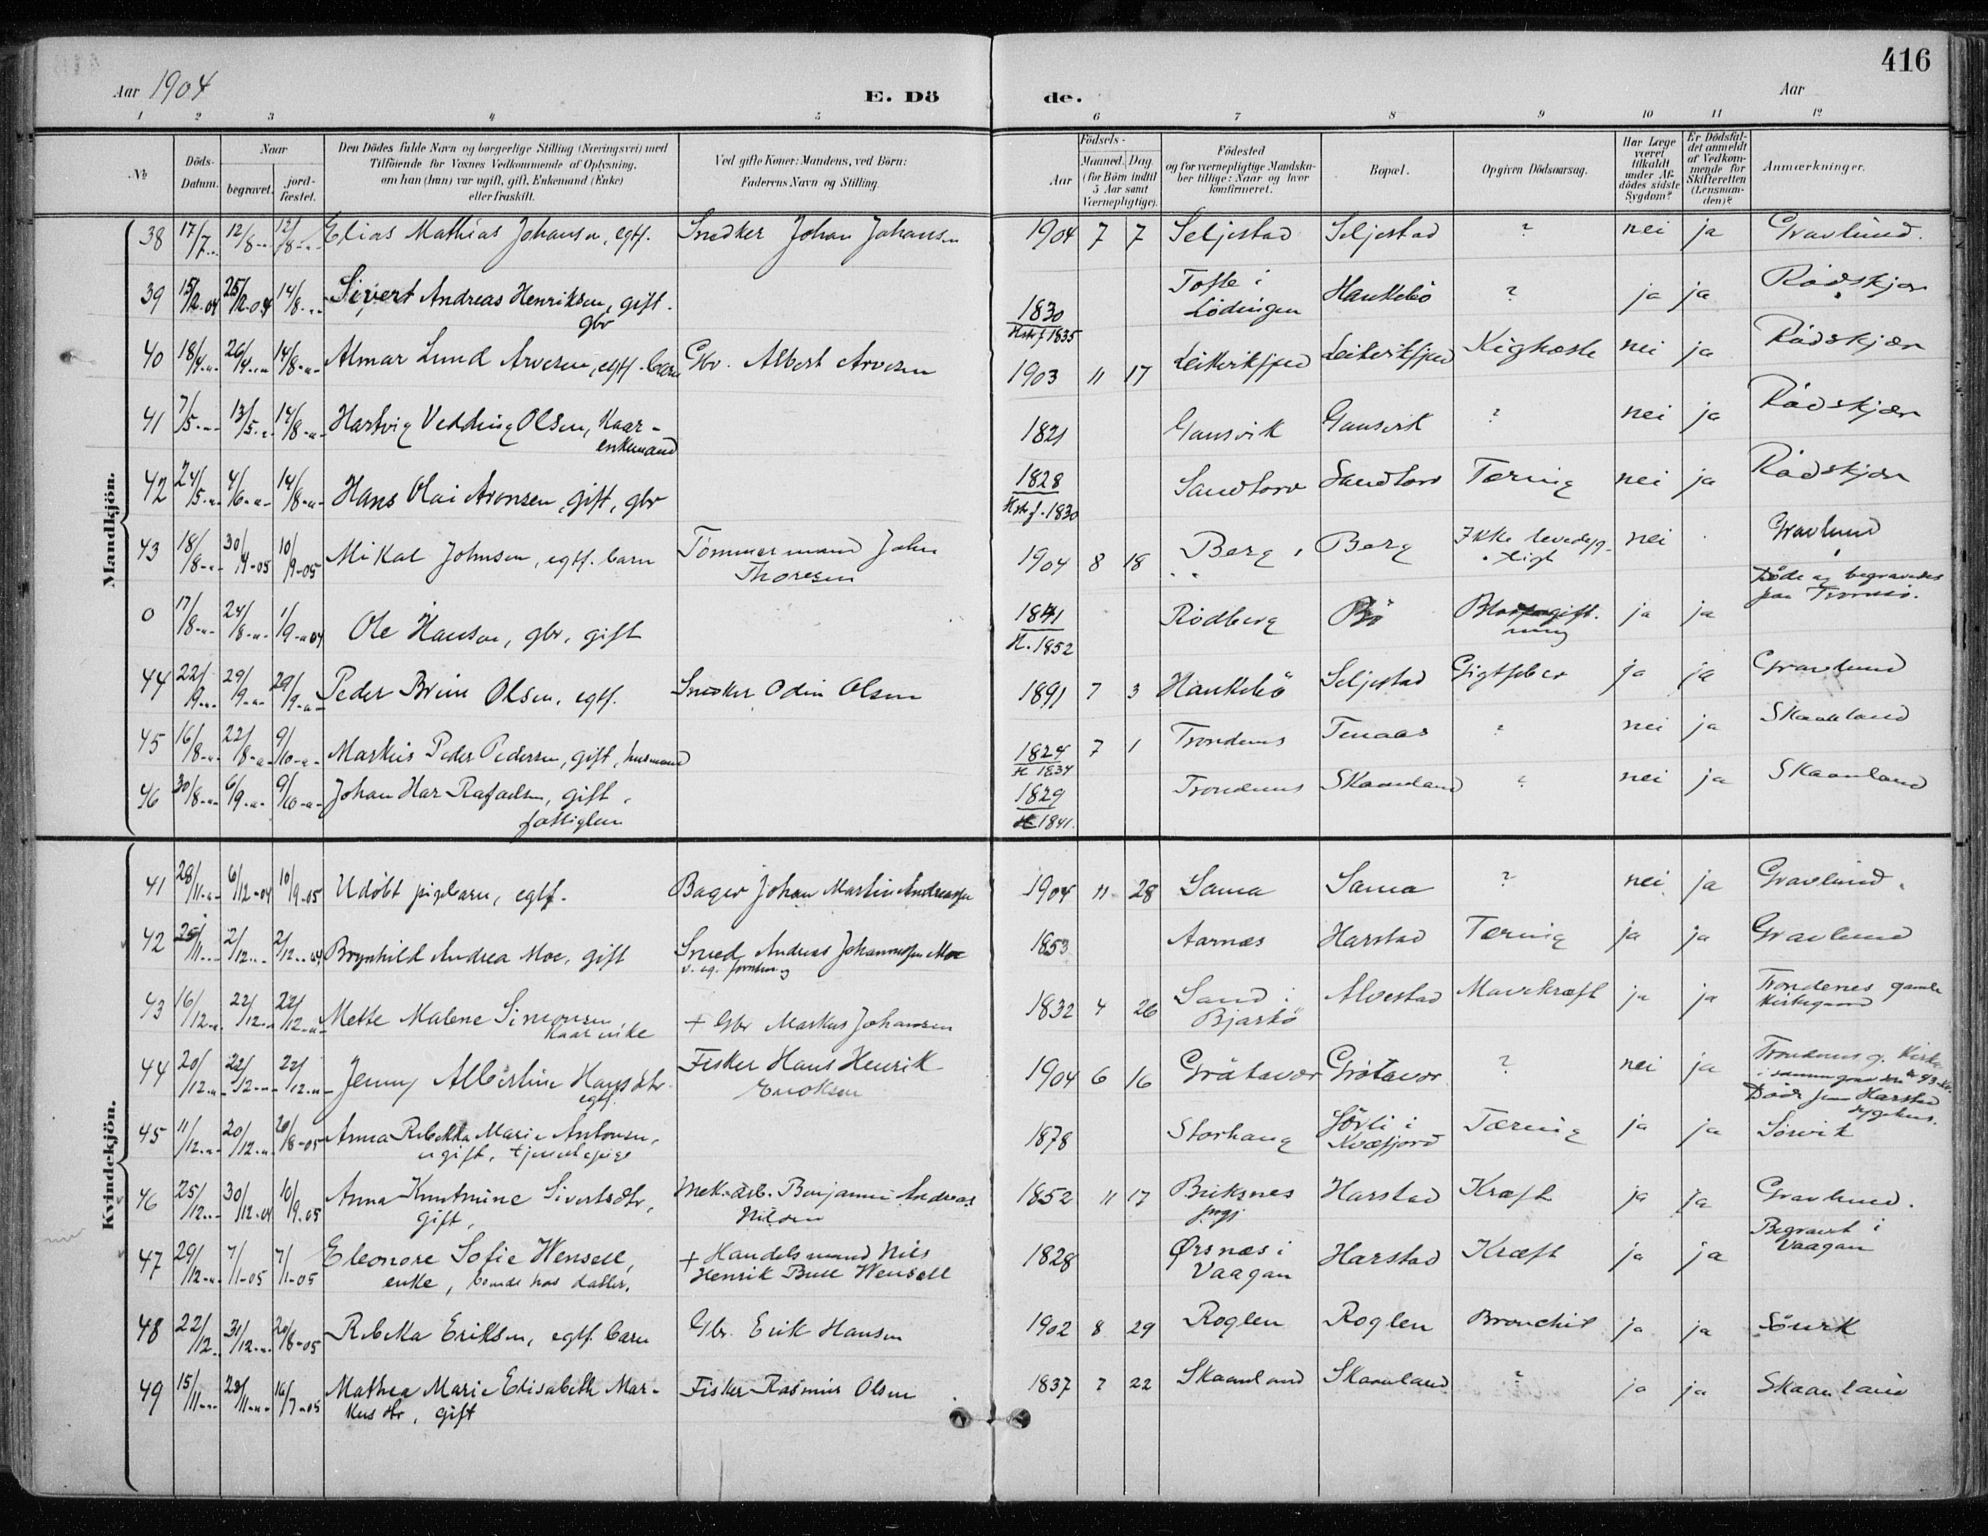 416
Aar 1904
E. Dö de.
Aar
1 2 3 4 5 6 7 8 9 10 11 12
№
Döds-
Datum.
Naar
begravet.
jord-
fæstet.
Den Dödes fulde Navn og borgerlige Stilling (Næringsvei) med
Tilföiende for Voxnes Vedkommende af Oplysning,
om han (hun) var ugift, gift, Enkemand (Enke)
eller fraskilt.
Ved gifte Koner: Mandens, ved Börn:
Faderens Navn og Stilling.
Födsels-
Aar
Maaned. Dag.
(for Börn indtil
5 Aar samt
Værnepligtige).
Födested
og for værnepligtige Mandska-
ber tillige: Naar og hvor
konfirmeret.
Bopæl.
Opgiven Dödsaarsag.
Har Læge
været
tilkaldt
under Af-
dödes sidste
Sygdom?
Er Dödsfal-
det anmeldt
af Vedkom-
mende for
Skifteretten
(Lensman-
den)?
Anmærkninger.
Mandkjön.
38 17/7 12/8 12/8 Elias Mathias Johansen, egtf. Snedker Johan Johansen 1904 7 7 Seljestad Seljestad ? nei ja Gravlund.
39 15/2-04 25/2-04 14/8 Sivert Andreas Henriksen, gift.
gbr
1830
1835
Tofte i
Lödingen
Haukebö ? ja ja Rødskjær
40 18/4 26/4 14/8 Almar Lund Arvesen, egtf. barn Gbr. Albert Arvesen 1903 11 17 Kighoste nei ja Rødskjær
41 7/5 13/5 14/8 Hartvig Vedding Olsen, Kaar-
enkemand
1821 Gausvik Gausvik ? nei ja Rødskjær
42 24/5 4/6 14/8 Hans Olai Aronsen, gift, gbr
1828
1830
Sandtorv Sandtorv Tæring nei ja Rødskjær
43 18/8 30/4-05 10/9-05 Mikal Johnsen, egtf. barn Tømmermand John
Thoresen
1904 8 18 Berg Berg Ikke levedyg-
tigt
nei Gravlund
0 17/8 24/8 1/9-04 Ole Hansen, gbr, gift
1841
H. 1852
Rødberg Bö Blodforgift-
ning
ja ja
Døde og begravedes
paa Tromsö.
44 22/9 29/9 29/9 Peder Olsen, egtf. Snedker Odin Olsen 1891 7 3 Haukebö Seljestad Gigtfeber ja ja Gravlund
45 16/8 22/8 9/10 Markus Peder Pedersen, gift, husmand
1824 7 1
H 1834
Trondenes Tenaas ? nei ja Skaanland
46 30/8 6/9 9/10 Johan Har Rafaelsen, gift,
fattiglem
1829
H 1841.
Trondenes Skaanland ? nei ja Skaanland
Kvindekjön.
41 28/11 6/12-04 10/9-05 Udöbt pigebarn, egtf. Bager Johan Martin Andreassen 1904 11 28 Sama Sama ? nei ja Gravlund.
42 25/11 2/12 2/12-04 Brynhild Andrea Moe, gift Smed Andreas Johannessen Moe
1853 Aarnæs Harstad Tæring ja ja Gravlund
43 16/12 22/12 22/12 Mette Malene Simonsen
Kaarenke
+ Gbr Markus Johansen 1832 4 26 Sand i
Bjarkö
Alvestad Mavekræft ja ja Trondenes gamle
Kirkegaard
44 20/12 22/12 22/12 Jenny Albertine Hansdtr
egtf.
Fisker Hans Henrik
Enoksen
1904 6 16 Grötavær Grötavær ? nei ja
Døde paa Harstad
sygehus.
45 11/12 20/12 20/8-05 Anna Rebekka Marie Antonsen,
ugift, tjenestepige
1878 Storhaug Sörli i
Kvæfjord
Tæring ja ja Sørvik
46 25/12 30/12-04 10/9-05 Anna Knutmine Sivertsdtr,
gift,
Mek. arb. Benjamin Andreas
Nilsen
1852 11 17 Buksnes
prgj
Harstad Kræft ja ja Gravlund.
47 29/12 7/1-05 7/1-05 Eleonore Sofie Wensell,
enke, boende hos datter.
+ Handelsmand Nils
Henrik Bull Wensell
1828 Ørsnæs i
Vaagan
Harstad Kræft ja ja Begravet i
Vaagan
48 22/12 31/12 20/8-05 Rebekka Eriksen, egtf. barn Gbr. Erik Hansen 1902 8 29 Roglen Roglen Bronchit ja ja Sørvik
49 15/11 23/11 16/7-05 Mathea Marie Elisabeth Mar-
kusdtr, gift
Fisker Rasmus Olsen 1837 7 22 Skaanland Skaanland ? ja ja Skaanland